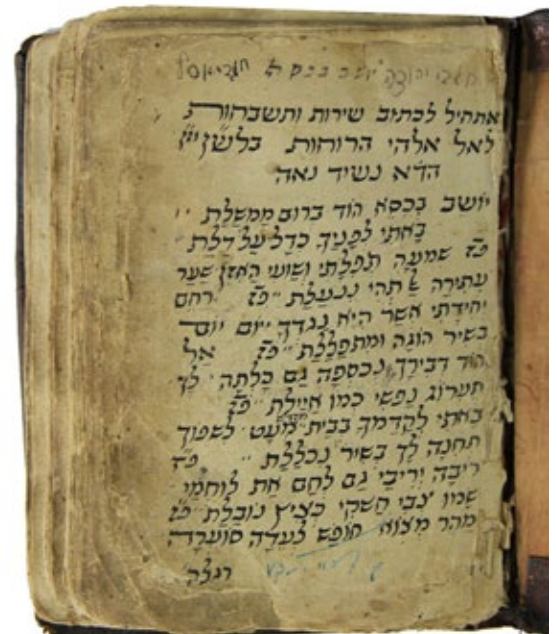 אתחיל לכתוב שירות ותשבחות
לאל אלהי הרוחות בלשון
הדא נשיד נאה
יושב בכסא הוד ברום ממשלת
באתי לפניך כדל על דלת
פז שמעה תפלתי ושועי האזן שער
עתירה אל תהי ננעלת פז רחם
יחידתי אשר היא נגדך יום יום
בשיר הוגה ומתפללת פז אל
הוד דבירך נכספה גם כלתה לך
תערוג נפשי כמו איילת פז
באתי לקדמך בבית מעט לשפוך
תחנה לך בשיר נכללת פז
ריבה יריבי גם לחם את לוחמי
שמו צבי חשקי כציץ נובלת פז
מהר מצוא חופש לעדה סוערה